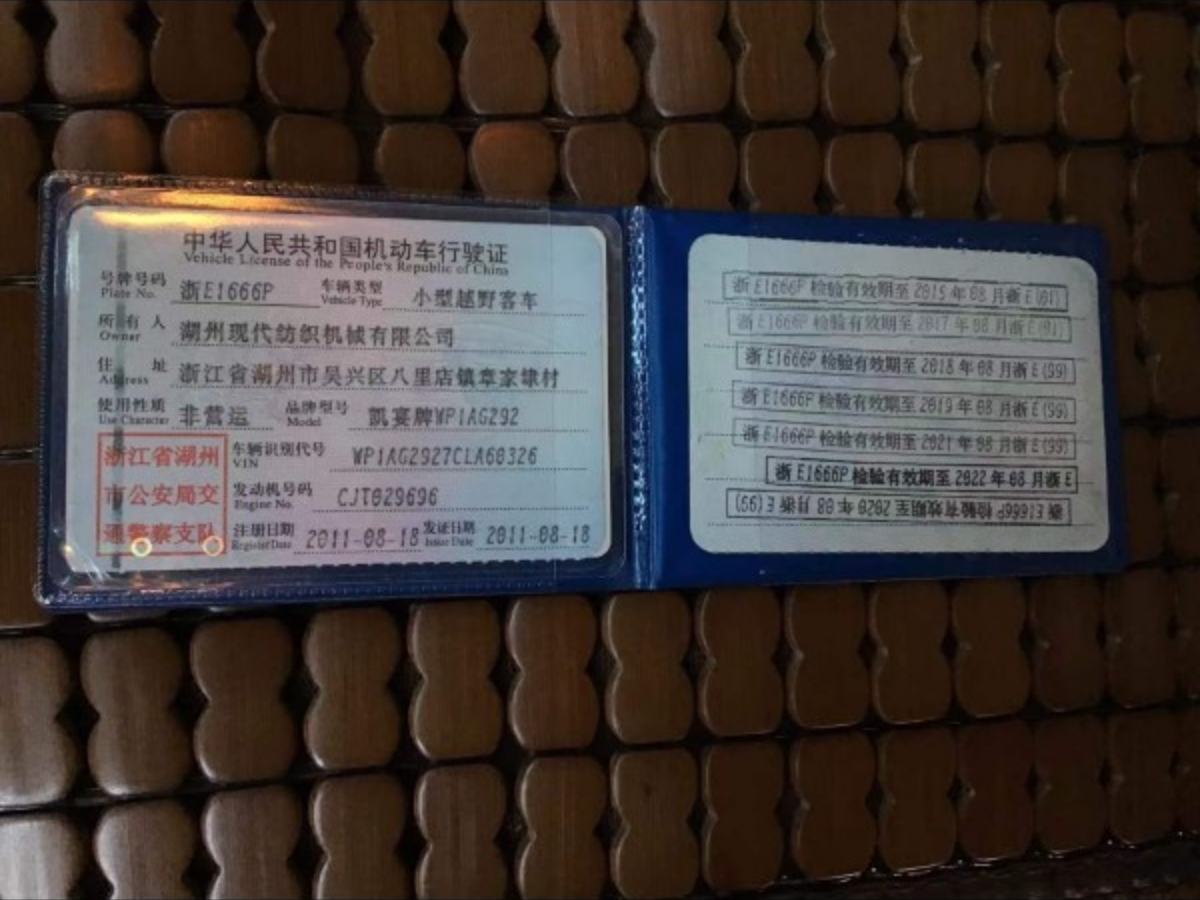 中华人民共和国机动车行驶证
Vehicle License of the People's Republic of China
号牌号码 浙E1666P 车辆类型 小型越野客车
Plate No. Vehicle Type
所有人 湖州现代纺织机械有限公司
Owner
住址 浙江省湖州市吴兴区八里店镇章家埭村
Address
使用性质 非营运 品牌型号 凯宴牌WP1AG292
Use Character Model
浙江省湖州 车辆识别代号 WP1AG2927CLA60326
VIN
市公安局交 发动机号码 CJT029696
Engine No.
通警察支队 注册日期 2011-08-18 发证日期 2011-08-18
Register Date Issue Date
浙E1666P 检验有效期至 2015年08月浙E(01)
浙E1666P 检验有效期至 2017年08月浙E(01)
浙E1666P 检验有效期至 2018年08月浙E(99)
浙E1666P 检验有效期至 2019年08月浙E(99)
浙E1666P 检验有效期至 2021年08月浙E(99)
浙E1666P 检验有效期至 2022年08月浙E
浙E1666P 检验有效期至 2020年08月浙E(99)